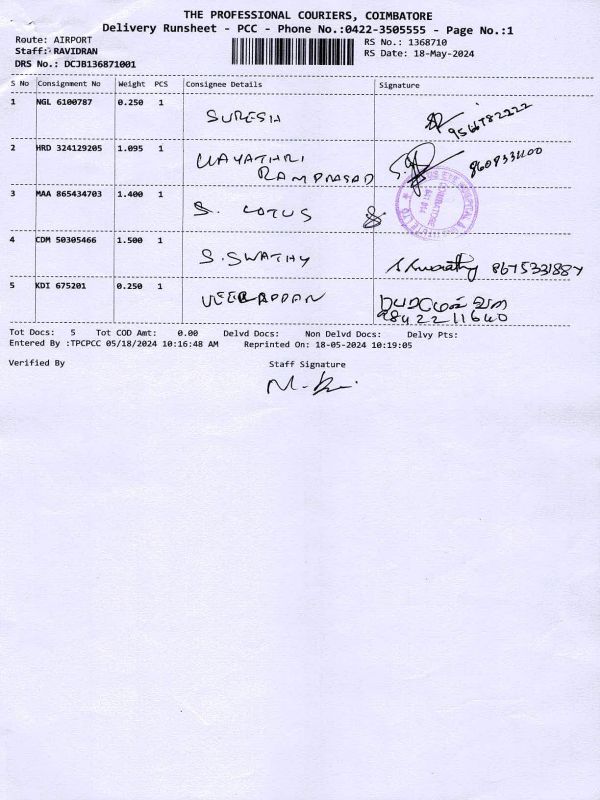 THE PROFESSIONAL COURIERS, COIMBATORE
Delivery Runsheet - PCC - Phone No.:0422-3505555 - Page No.:1
Route: AIRPORT
RS No.: 1368710
Staff: RAVIDRAN
RS Date: 18-May-2024
DRS No.: DCJB136871001
S No Consignment No Weight PCS Consignee Details Signature
1 NGL 6100787 0.250 1 SURESH 9566782222
2 HRD 324129205 1.095 1 UAYATHRI
RAMPRASAD
3 MAA 865434703 1.400 1 S. LOTUS
4 CDM 50305466 1.500 1 S. SWATHY S Swathy
5 KDI 675201 0.250 1 VEERAPPAN
9842211640
Tot Docs: 5 Tot COD Amt: 0.00 Delvd Docs: Non Delvd Docs: Delvy Pts:
Entered By :TPCPCC 05/18/2024 10:16:48 AM Reprinted On: 18-05-2024 10:19:05
Verified By Staff Signature